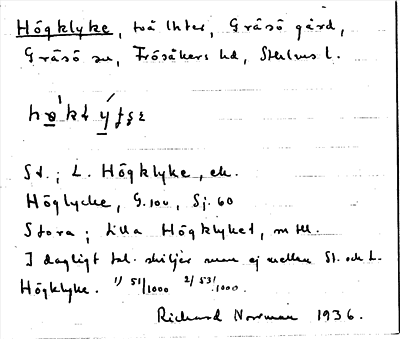 Högklyke, två lhter, Gräsö gård,
Gräsö sn, Frösåkers hd, Sthlms l.
St. ; L. Högklyke, ek.
Höglycke, G. 100, Sj. 60
Stora ; Lilla Högklyket, m tll.
I dagligt tal skiljer man ej mellan St. och L.
Högklyke. 1) 51/1000 2) 53/1000.
Richard Norrman 1936.